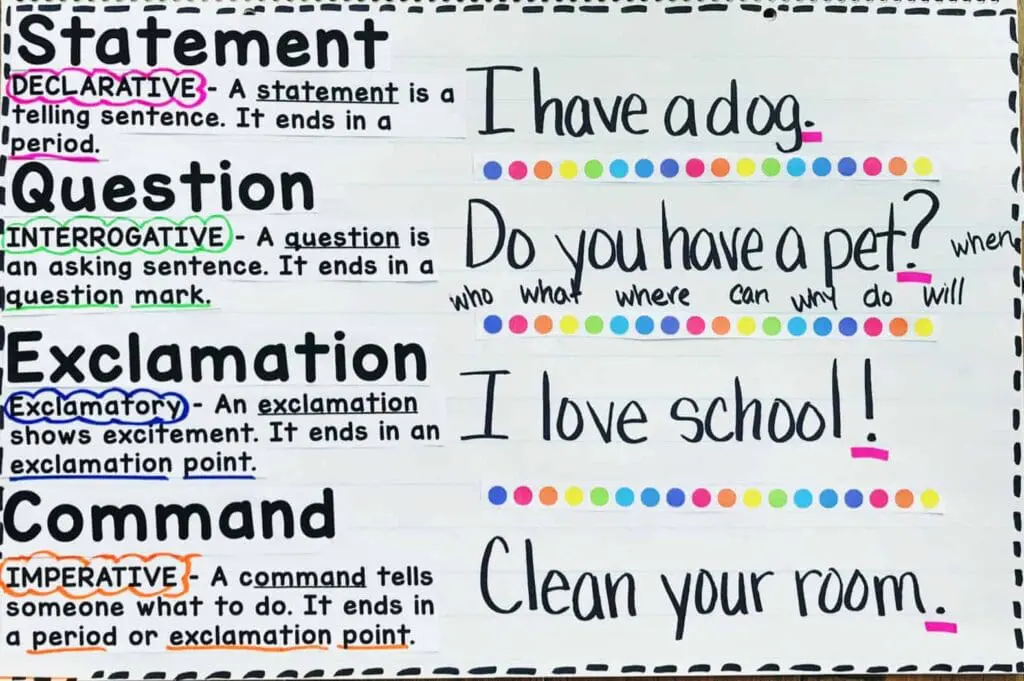 Statement
DECLARATIVE - A statement is a
telling sentence. It ends in a
period.
I have a dog.
Question
INTERROGATIVE - A question is
an asking sentence. It ends in a
question mark.
Do you have a pet?
when
who what where can why do will
Exclamation
Exclamatory - An exclamation
shows excitement. It ends in an
exclamation point.
I love school!
Command
IMPERATIVE - A command tells
someone what to do. It ends in
a period or exclamation point.
Clean your room.